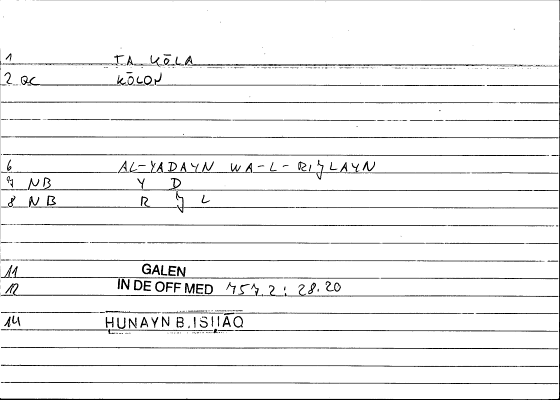 1 TA KŌLA
2 GC KŌLON
6 AL-YADAYN WA-L-RIǦLAYN
7 NB Y D
8 NB R Ǧ L
11 GALEN
12 IN DE OFF MED 757.2 : 28.20
14 HUNAYN B. ISHĀQ